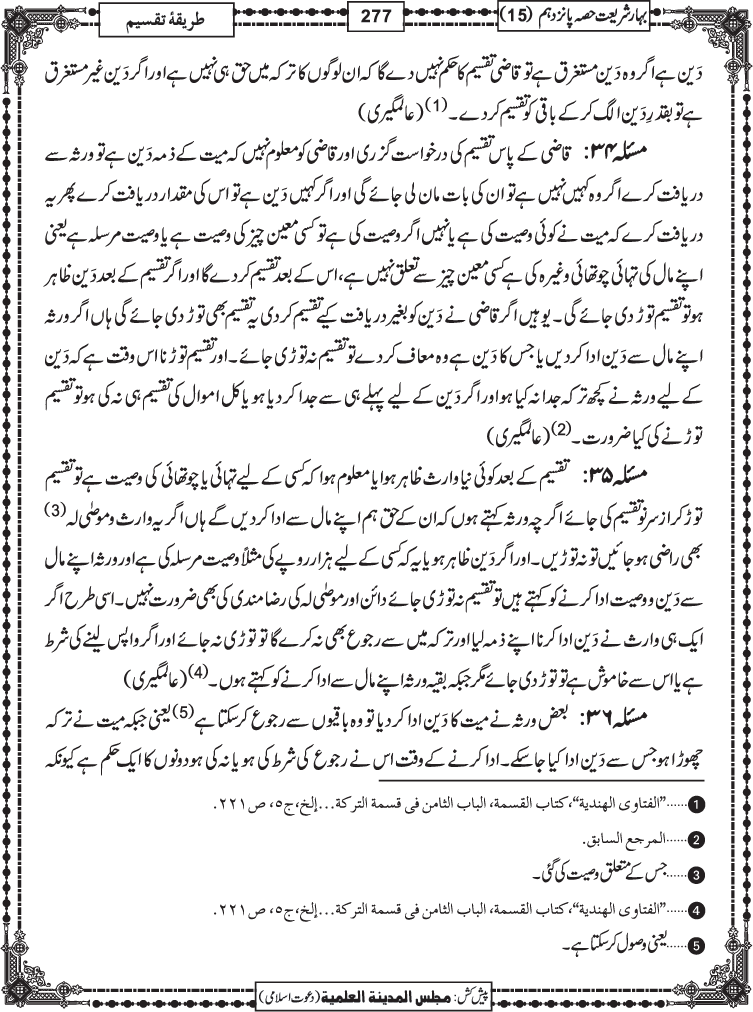 بہارِ شریعت حصہ پانزدہم (15)
277
طریقۂ تقسیم
دَین ہے اگر وہ دَین مستغرق ہے تو قاضی تقسیم کا حکم نہیں دے گا کہ ان لوگوں کا ترکہ میں حق ہی نہیں ہے اور اگر دَین غیر مستغرق
ہے تو بقدرِ دَین الگ کر کے باقی کو تقسیم کر دے۔(1) (عالمگیری)
مسئلہ ۳۴: قاضی کے پاس تقسیم کی درخواست گزری اور قاضی کو معلوم نہیں کہ میت کے ذمہ دَین ہے تو ورثہ سے
دریافت کرے اگر وہ کہیں نہیں ہے تو ان کی بات مان لی جائے گی اور اگر کہیں دَین ہے تو اس کی مقدار دریافت کرے پھر یہ
دریافت کرے کہ میت نے کوئی وصیت کی ہے یا نہیں اگر وصیت کی ہے تو کسی معین چیز کی وصیت ہے یا وصیت مرسلہ ہے یعنی
اپنے مال کی تہائی چوتھائی وغیرہ کی ہے کسی معین چیز سے تعلق نہیں ہے، اس کے بعد تقسیم کر دے گا اور اگر تقسیم کے بعد دَین ظاہر
ہو تو تقسیم توڑ دی جائے گی۔ یوہیں اگر قاضی نے دَین کو بغیر دریافت کیے تقسیم کر دی یہ تقسیم بھی توڑ دی جائے گی ہاں اگر ورثہ
اپنے مال سے دَین ادا کر دیں یا جس کا دَین ہے وہ معاف کر دے تو تقسیم نہ توڑی جائے۔ اور تقسیم توڑنا اس وقت ہے کہ دَین
کے لیے ورثہ نے کچھ ترکہ جدا نہ کیا ہو اور اگر دَین کے لیے پہلے ہی سے جدا کر دیا ہو یا کل اموال کی تقسیم ہی نہ کی ہو تو تقسیم
توڑنے کی کیا ضرورت۔(2) (عالمگیری)
مسئلہ ۳۵: تقسیم کے بعد کوئی نیا وارث ظاہر ہوا یا معلوم ہوا کہ کسی کے لیے تہائی یا چوتھائی کی وصیت ہے تو تقسیم
توڑ کر از سرِ نو تقسیم کی جائے اگرچہ ورثہ کہتے ہوں کہ ان کے حق ہم اپنے مال سے ادا کر دیں گے ہاں اگر یہ وارث و موصٰی لہ(3)
بھی راضی ہو جائیں تو نہ توڑیں۔ اور اگر دَین ظاہر ہو یا یہ کہ کسی کے لیے ہزار روپے کی مثلاً وصیت مرسلہ کی ہے اور ورثہ اپنے مال
سے دَین و وصیت ادا کرنے کو کہتے ہیں تو تقسیم نہ توڑی جائے دائن اور موصٰی لہ کی رضا مندی کی بھی ضرورت نہیں۔ اسی طرح اگر
ایک ہی وارث نے دَین ادا کرنا اپنے ذمہ لیا اور ترکہ میں سے رجوع بھی نہ کرے گا تو توڑی نہ جائے اور اگر واپس لینے کی شرط
ہے یا اس سے خاموش ہے تو توڑ دی جائے مگر جبکہ بقیہ ورثہ اپنے مال سے ادا کرنے کو کہتے ہوں۔(4) (عالمگیری)
مسئلہ ۳۶: بعض ورثہ نے میت کا دَین ادا کر دیا تو وہ باقیوں سے رجوع کر سکتا ہے(5) یعنی جبکہ میت نے ترکہ
چھوڑا ہو جس سے دَین ادا کیا جا سکے۔ ادا کرنے کے وقت اس نے رجوع کی شرط کی ہو یا نہ کی ہو دونوں کا ایک حکم ہے کیونکہ
1......"الفتاوی الهندية"، كتاب القسمة، الباب الثامن فی قسمة التركة...إلخ، ج٥، ص ٢٢١.
2......المرجع السابق.
3......جس کے متعلق وصیت کی گئی۔
4......"الفتاوی الهندية"، كتاب القسمة، الباب الثامن فی قسمة التركة...إلخ، ج٥، ص ٢٢١.
5......یعنی وصول کر سکتا ہے۔
پیش کش: مجلس المدينة العلمية (دعوتِ اسلامی)